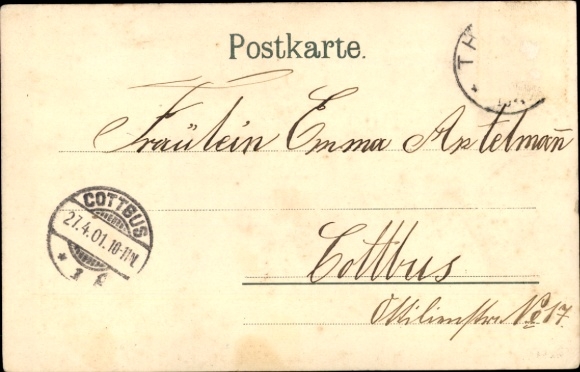 Postkarte.
TH
Fräulein Emma Axtelmañ
COTTBUS
27.4.01.10-11V.
* 1
Cottbus
Ottilienstr. No 17.